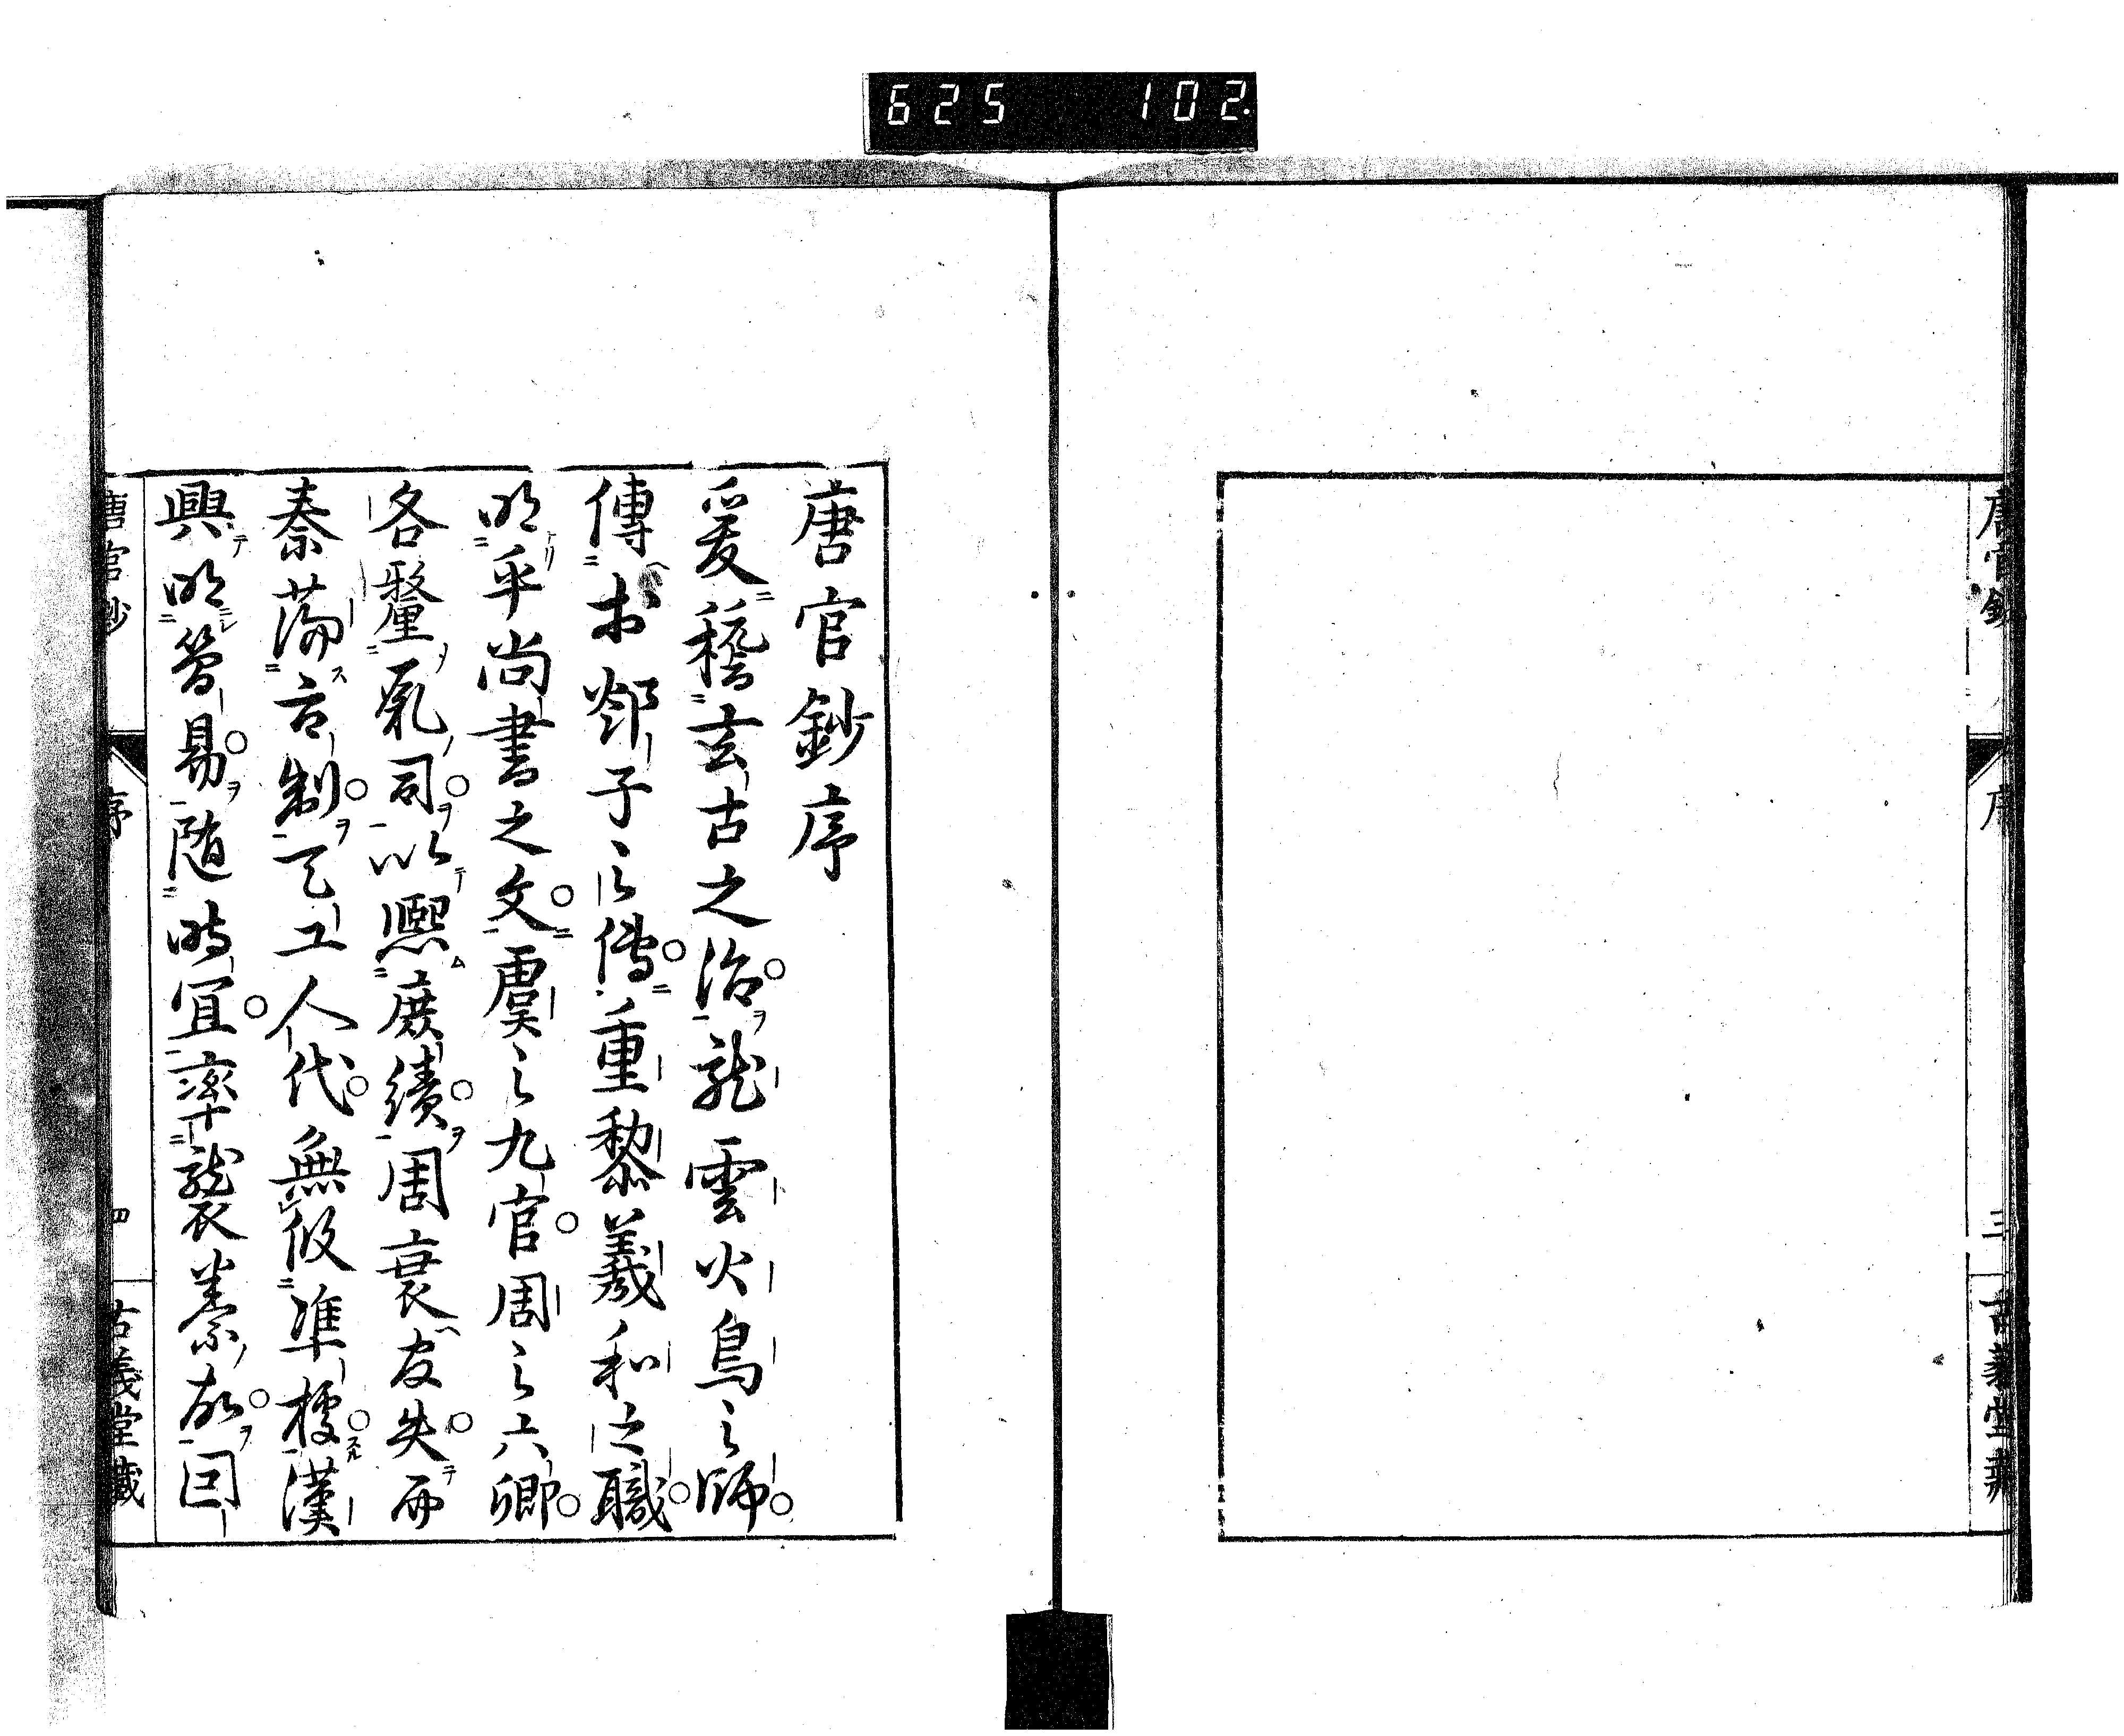 625 102
唐官鈔 序 三 古義堂藏
唐官鈔序
爰稽玄古之治龍雲火鳥之師
傳於郯子之傳重黎羲和之職
明乎尚書之文虞之九官周之六卿
各釐厥司以熙庶績周衰官失而
秦蕩古制天工人代無所準據漢
興明簡易隨時宜率襲秦故因
唐官鈔 序 四 古義堂藏